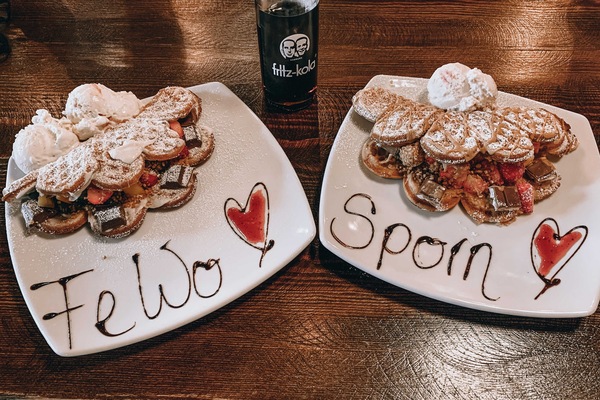 fritz-kola
FeWo
Spoin